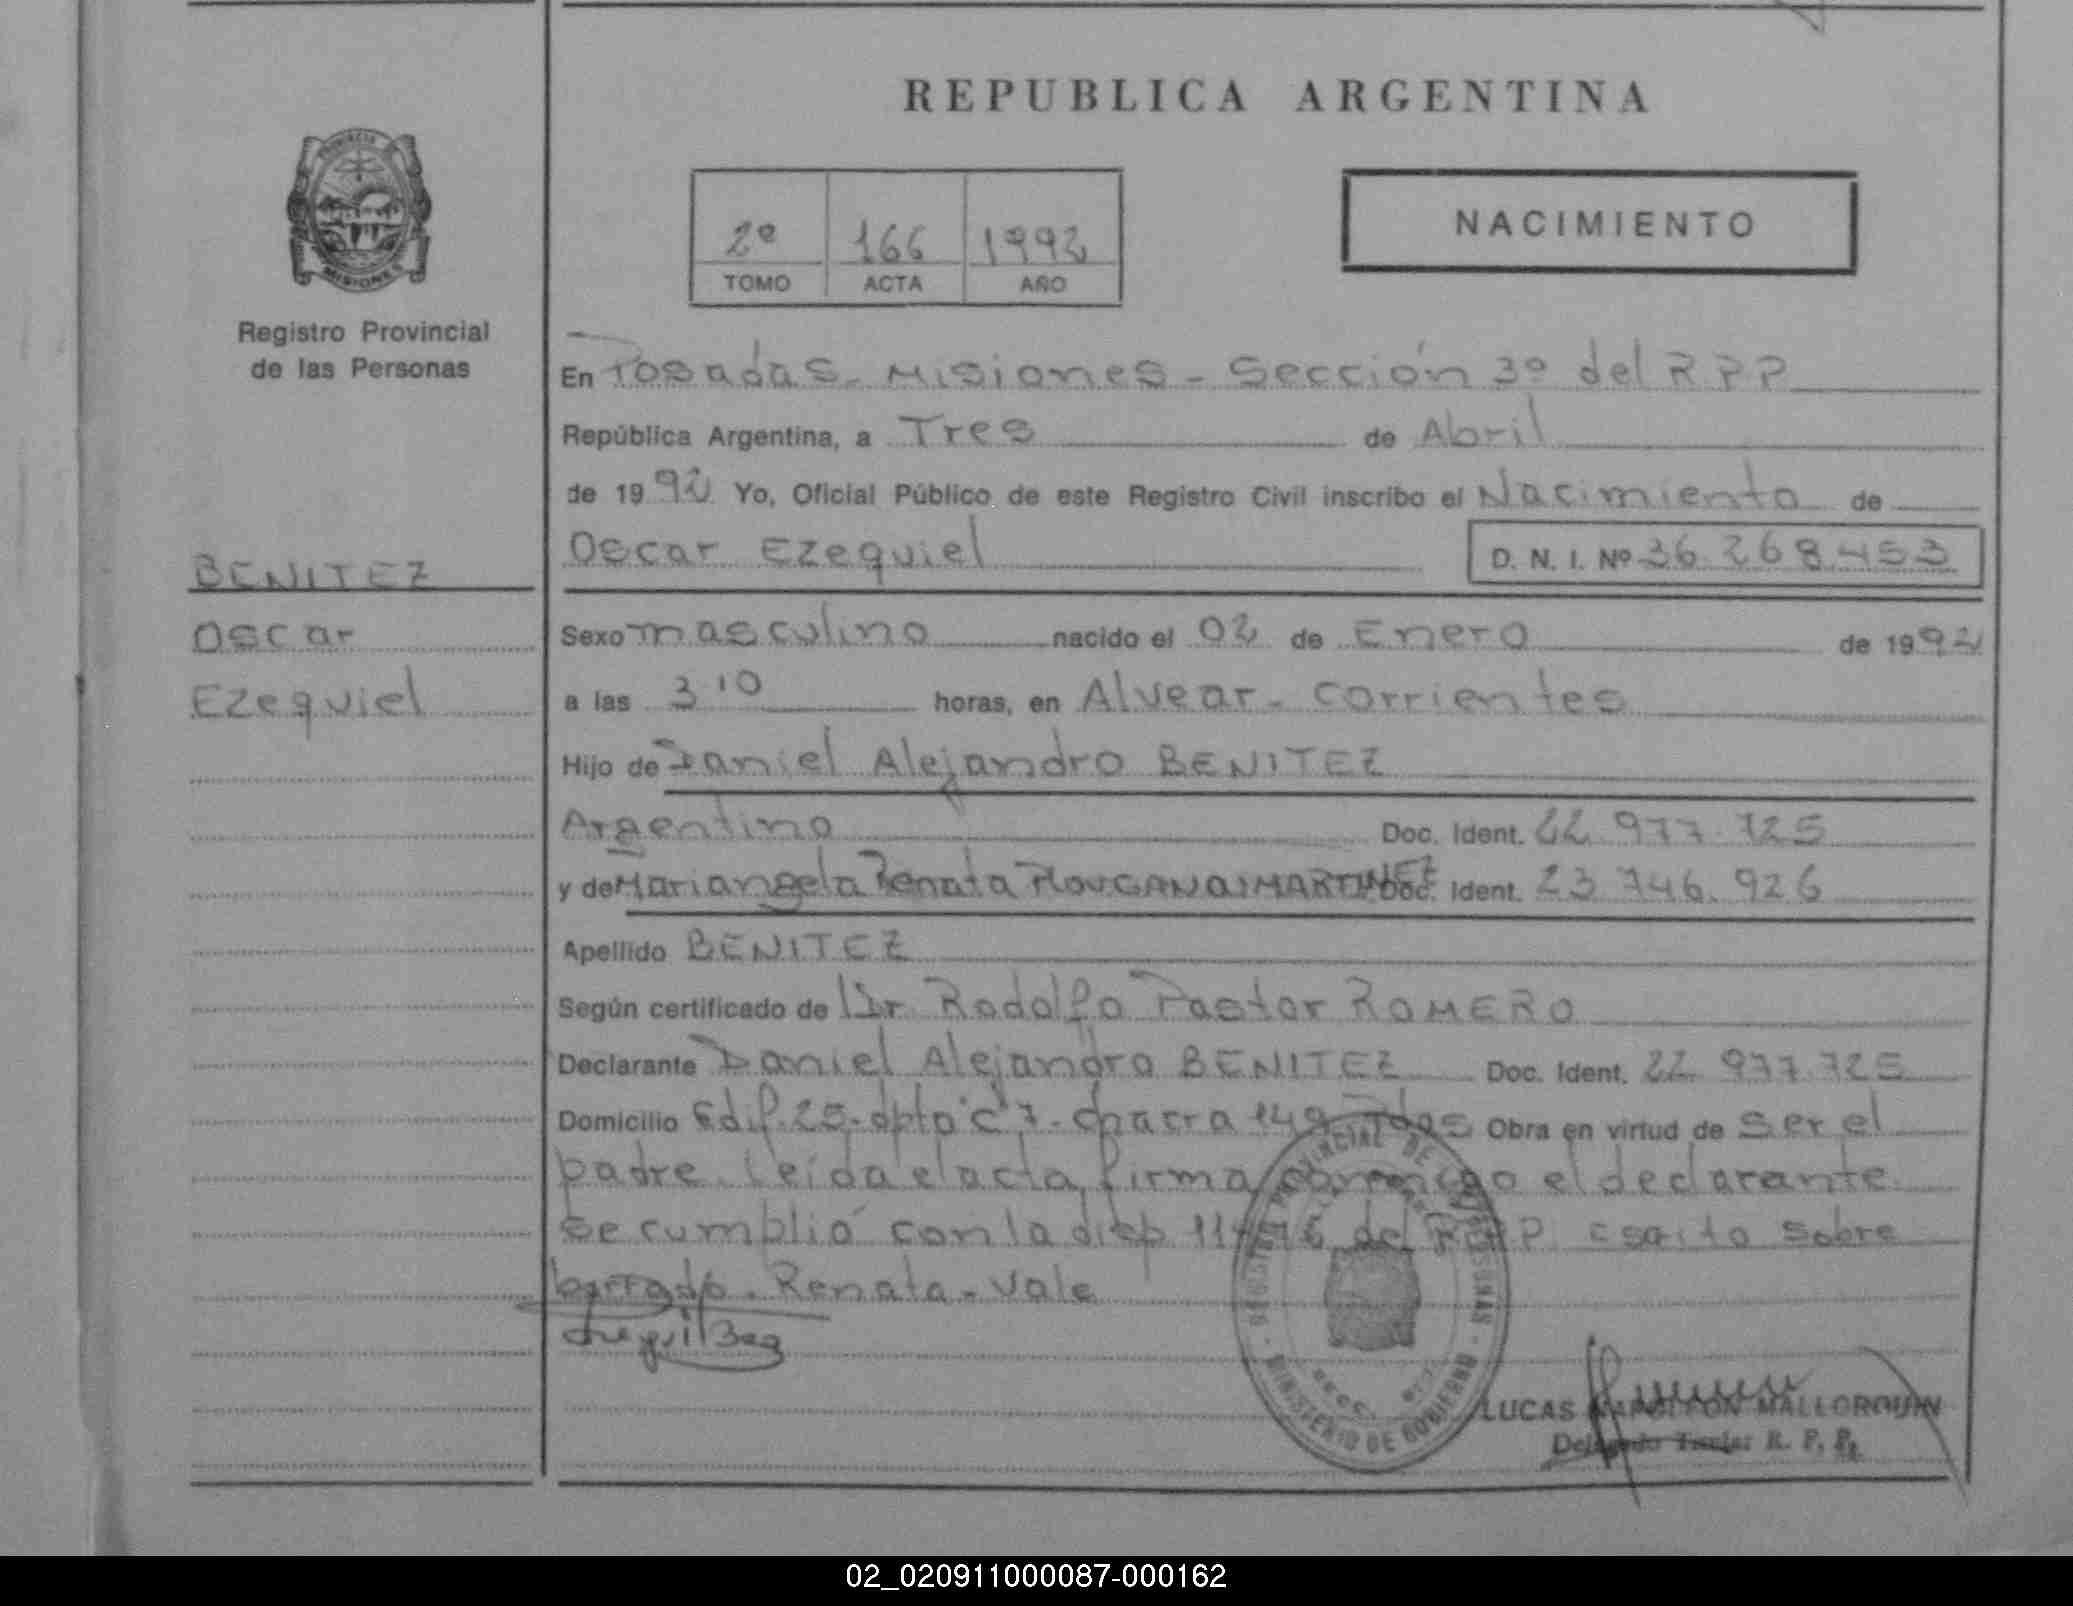 REPUBLICA ARGENTINA
PROVINCIA
MISIONES
Registro Provincial
de las Personas
2º 166 1992
TOMO ACTA AÑO
NACIMIENTO
En Posadas - Misiones - Sección 3º del R P P
República Argentina, a Tres de Abril
de 1992 Yo, Oficial Público de este Registro Civil inscribo el Nacimiento de
Oscar Ezequiel D. N. I. Nº 36.268.453
BENITEZ
Oscar
Ezequiel
Sexo masculino nacido el 02 de Enero de 1992
a las 3 10 horas, en Alvear - Corrientes
Hijo de Daniel Alejandro BENITEZ
Argentino Doc. Ident. 22.977.725
y de Mariangela Renata MARTINEZ Doc. Ident. 23.746.926
Apellido BENITEZ
Según certificado de Dr. Rodolfo Pastor ROMERO
Declarante Daniel Alejandro BENITEZ Doc. Ident. 22.977.725
Domicilio Edif. 25 - dpto "C" 7 - chacra 149 Pdas Obra en virtud de ser el
padre. Leída el acta, firma conmigo el declarante
se cumplió con la disp del R P P. Escrito sobre
borrado - Renata - Vale
REGISTRO PROVINCIAL DE LAS PERSONAS
MINISTERIO DE GOBIERNO
LUCAS NAPOLEON MALLORQUIN
Delegado Titular R. P. P.
02_020911000087-000162